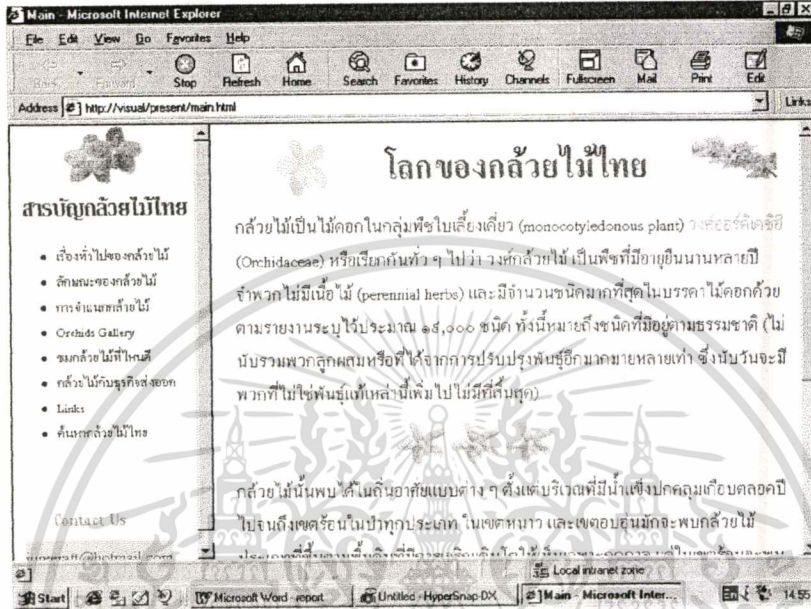 Main - Microsoft Internet Explorer
File Edit View Go Favorites Help
Back Forward Stop Refresh Home Search Favorites History Channels Fullscreen Mail Print Edit
Address http://visual/present/main.html Links
สารบัญกล้วยไม้ไทย
เรื่องทั่วไปของกล้วยไม้
ลักษณะของกล้วยไม้
การจำแนกกล้วยไม้
Orchids Gallery
ชมกล้วยไม้ที่ไหนดี
กล้วยไม้กับธุรกิจส่งออก
Links
ค้นหากล้วยไม้ไทย
Contact Us
โลกของกล้วยไม้ไทย
กล้วยไม้เป็นไม้ดอกในกลุ่มพืชใบเลี้ยงเดี่ยว (monocotyledonous plant) วงศ์ออร์คิเดซิอี
(Orchidaceae) หรือเรียกกันทั่ว ๆ ไปว่า วงศ์กล้วยไม้ เป็นพืชที่มีอายุยืนนานหลายปี
จำพวกไม่มีเนื้อไม้ (perennial herbs) และมีจำนวนชนิดมากที่สุดในบรรดาไม้ดอกด้วย
ตามรายงานระบุไว้ประมาณ ๑๕,๐๐๐ ชนิด ทั้งนี้หมายถึงชนิดที่มีอยู่ตามธรรมชาติ (ไม่
นับรวมพวกลูกผสมหรือที่ได้จากการปรับปรุงพันธุ์อีกมากมายหลายเท่า ซึ่งนับวันจะมี
พวกที่ไม่ใช่พันธุ์แท้เหล่านี้เพิ่มไปไม่มีที่สิ้นสุด)
กล้วยไม้นั้นพบได้ในถิ่นอาศัยแบบต่าง ๆ ตั้งแต่บริเวณที่มีน้ำแข็งปกคลุมเกือบตลอดปี
ไปจนถึงเขตร้อนในป่าทุกประเภท ในเขตหนาว และเขตอบอุ่นมักจะพบกล้วยไม้
Local intranet zone
Start Microsoft Word - report Untitled - HyperSnap-DX Main - Microsoft Inter...